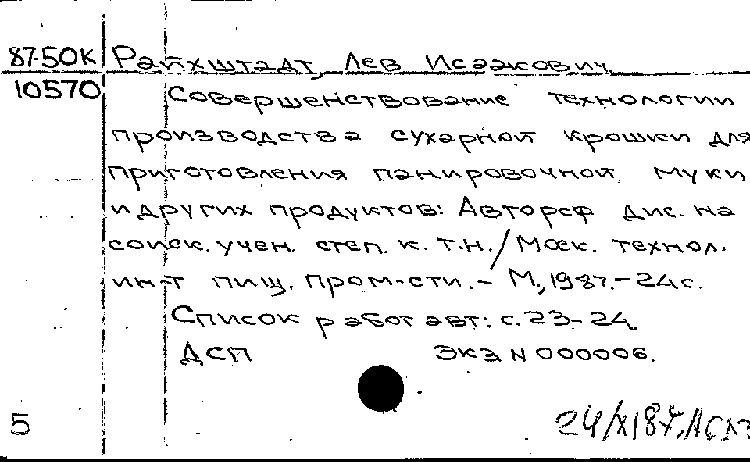 87-50К Райхштадт, Лев Исаакович.
10570
Совершенствование технологии
производства сухарной крошки для
приготовления панировочной муки
и других продуктов: Автореф дис. на
соиск. учен. степ. к.т.н./Моск. технол.
ин-т пищ. пром-сти.- М., 1987.-24с.
Список работ авт: с.23-24.
ДСП Экз N 000006.
5 24/X187.